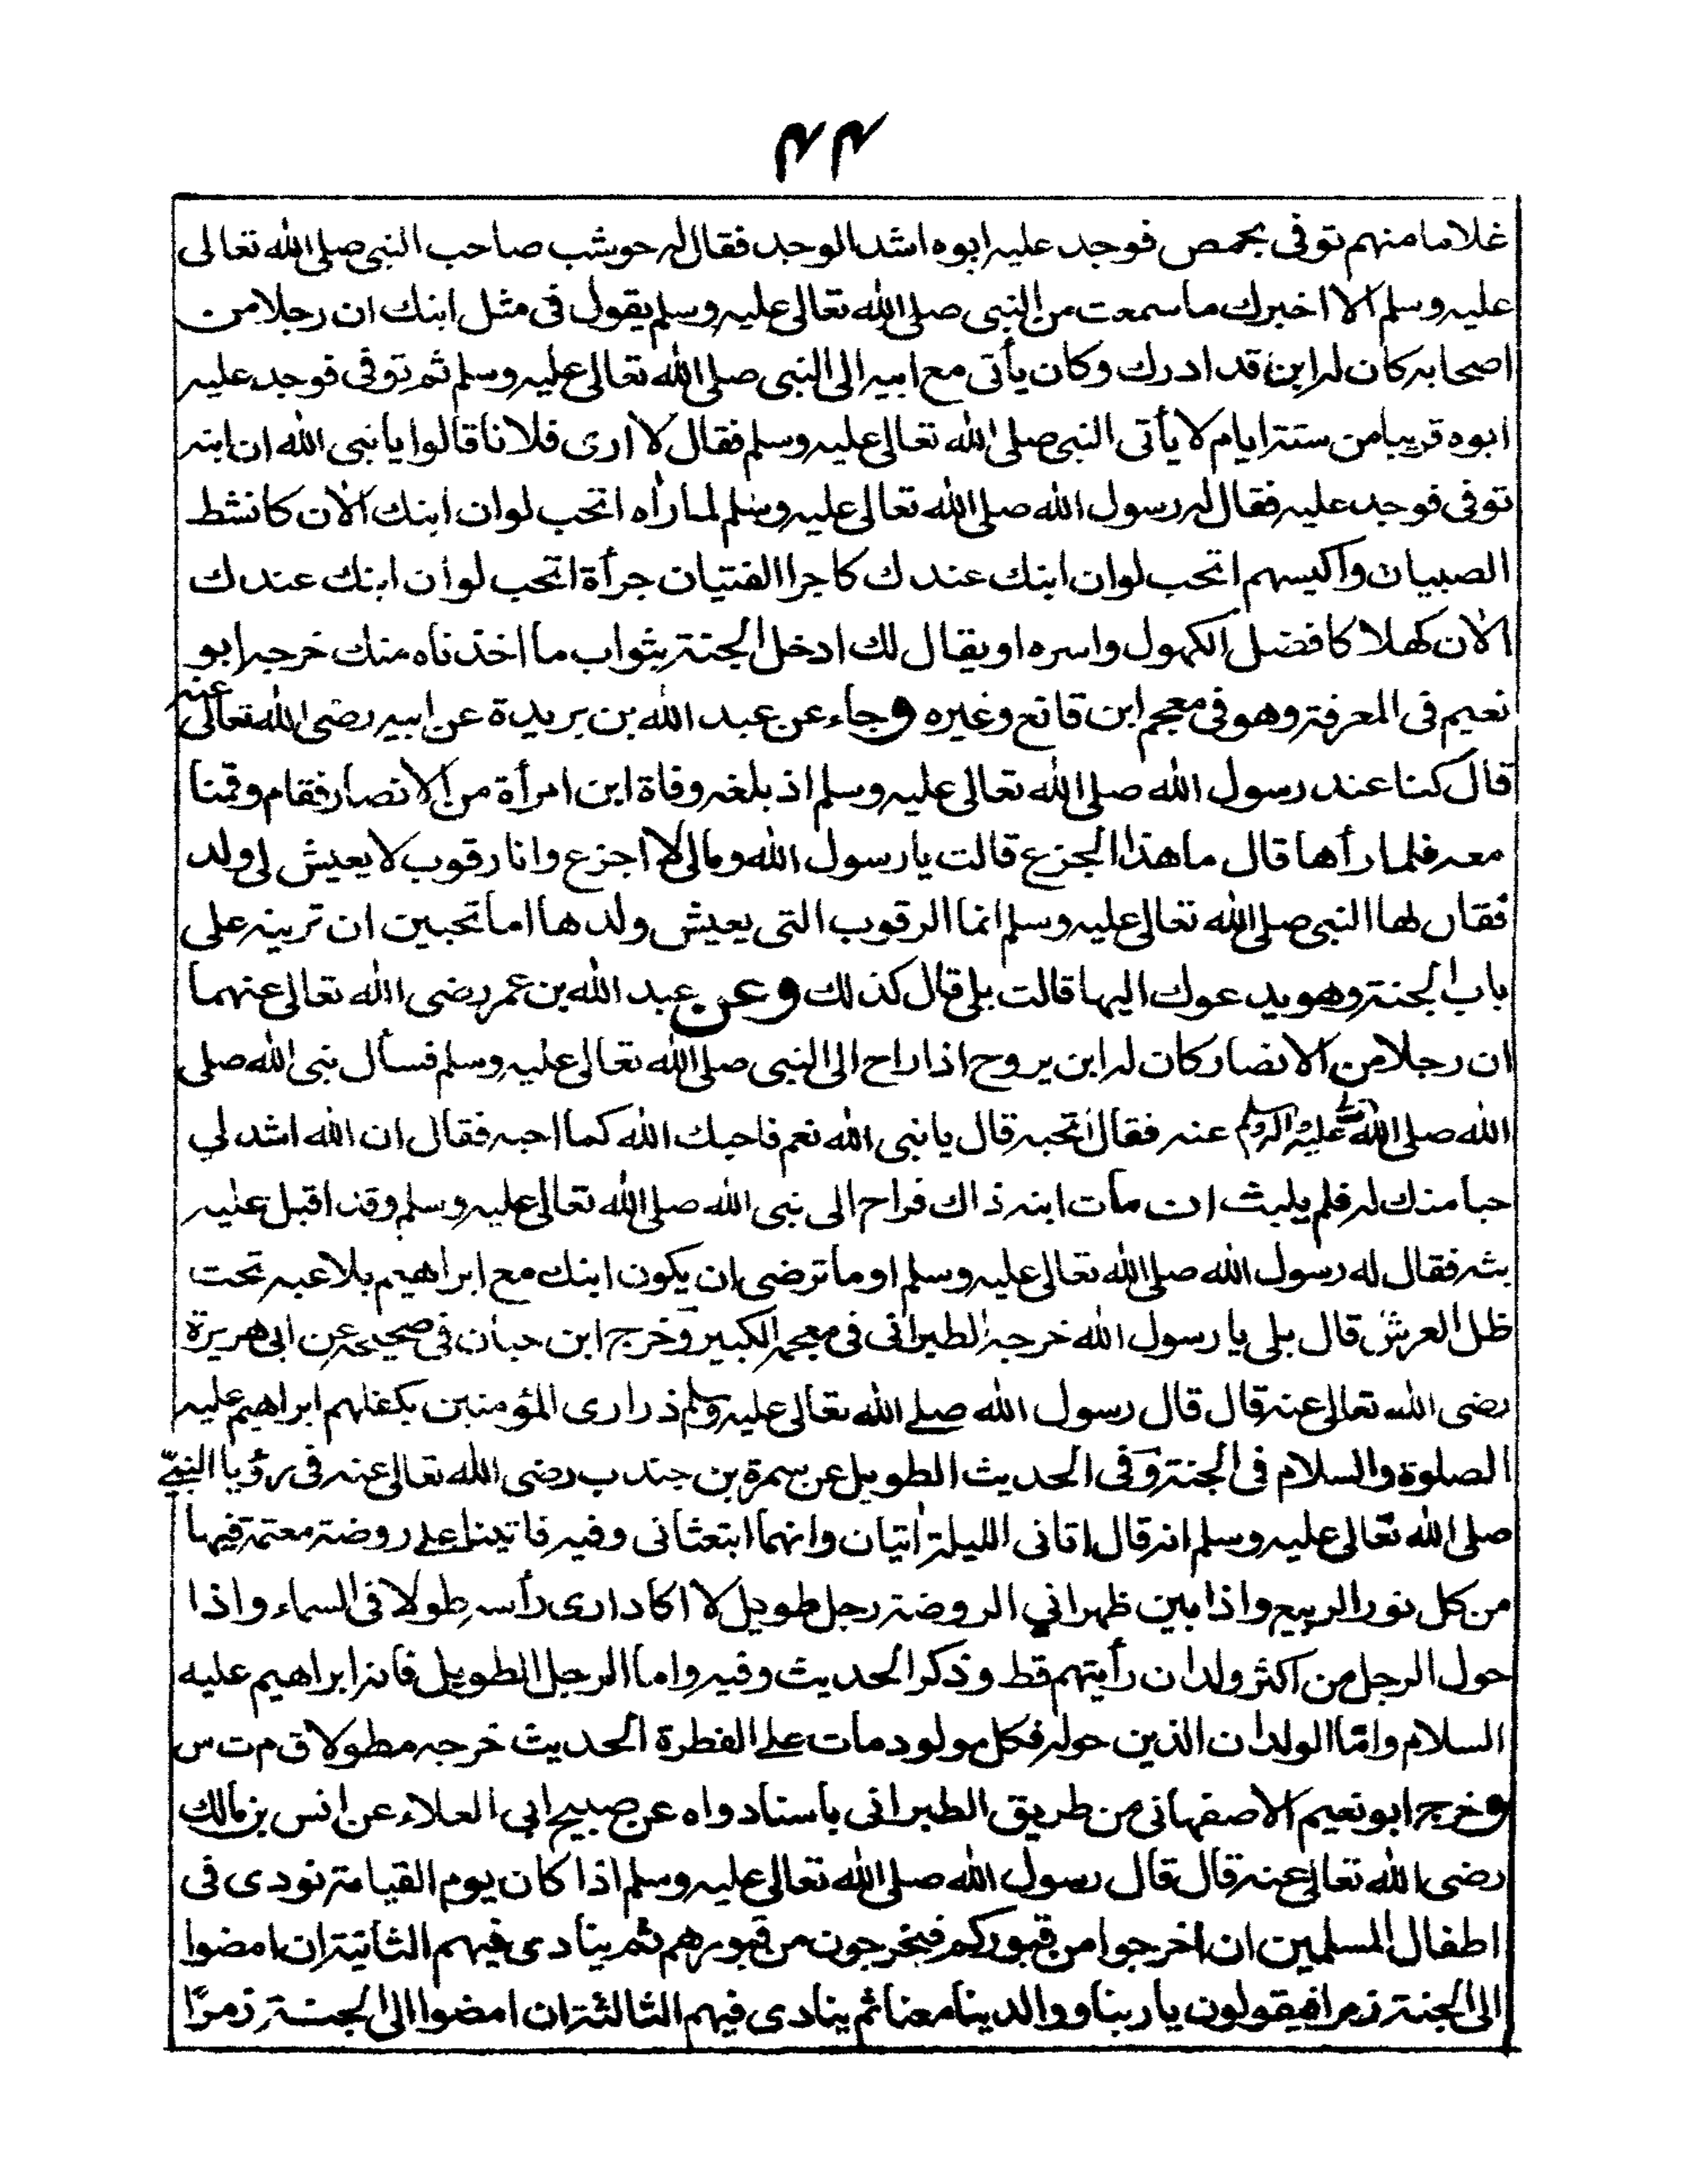 ۴۴
غلاما منهم توفى بحمص فوجد عليه ابوه اشد الوجد فقال له حوشب صاحب النبى صلى الله تعالى
عليه وسلم الا اخبرك ما سمعت من النبى صلى الله تعالى عليه وسلم يقول فى مثل ابنك ان رجلا من
اصحابه كان له ابن قد ادرك وكان يأتى مع ابيه الى النبى صلى الله تعالى عليه وسلم ثم توفى فوجد عليه
ابوه قريبا من ستة ايام لا يأتى النبى صلى الله تعالى عليه وسلم فقال لا ارى فلانا قالوا يا نبى الله ان ابنه
توفى فوجد عليه فقال له رسول الله صلى الله تعالى عليه وسلم لما رأه اتحب لو ان ابنك الآن كانشط
الصبيان واكيسهم اتحب لو ان ابنك عندك كاجرا الفتيان جرأة اتحب لو ان ابنك عندك
الآن كهلا كافضل الكهول واسره او يقال لك ادخل الجنة بثواب ما اخذناه منك خرجه ابو
نعيم فى المعرفة وهو فى معجم ابن قانع وغيره وجاء عن عبد الله بن بريدة عن ابيه رضى الله تعالى عنه
قال كنا عند رسول الله صلى الله تعالى عليه وسلم اذ بلغه وفاة ابن امرأة من الانصار فقام وقمنا
معه فلما رأها قال ما هذا الجزع قالت يا رسول الله ومالى لا اجزع وانا رقوب لا يعيش لى ولد
فقال لها النبى صلى الله تعالى عليه وسلم انما الرقوب التى يعيش ولدها اما تحبين ان ترينه على
باب الجنة وهو يدعوك اليها قالت بلى قال كذلك وعن عبد الله بن عمر رضى الله تعالى عنهما
ان رجلا من الانصار كان له ابن يروح اذا راح الى النبى صلى الله تعالى عليه وسلم فسأل نبى الله صلى
الله صلى الله تعالى عليه واله وسلم عنه فقال اتحبه قال يا نبى الله نعم فاحبك الله كما احبه فقال ان الله اشد لي
حبا منك له فلم يلبث ان مات ابنه ذاك فراح الى نبى الله صلى الله تعالى عليه وسلم وقد اقبل عليه
بثه فقال له رسول الله صلى الله تعالى عليه وسلم او ما ترضى ان يكون ابنك مع ابراهيم يلاعبه تحت
ظل العرش قال بلى يا رسول الله خرجه الطبرانى فى معجمه الكبير وخرج ابن حبان فى صحيحه عن ابى هريرة
رضى الله تعالى عنه قال قال رسول الله صلے الله تعالى عليه وسلم ذرارى المؤمنين يكفلهم ابراهيم عليه
الصلوة والسلام فى الجنة وفى الحديث الطويل عن سمرة بن جندب رضى الله تعالى عنه فى رؤيا النبىّ
صلى الله تعالى عليه وسلم انه قال اتانى الليلة اتيان وانهما ابتعثانى وفيه فاتينا علے روضة معتمة فيها
من كل نور الربيع واذا بين ظهراني الروضة رجل طويل لا اكاد ارى رأسه طولا فى السماء واذا
حول الرجل من اكثر ولدان رأيتهم قط وذكر الحديث وفيه واما الرجل الطويل فانه ابراهيم عليه
السلام وامّا الولدان الذين حوله فكل مولود مات علے الفطرة الحديث خرجه مطولا ق م ت س
وخرج ابو نعيم الاصفهانى من طريق الطبرانى باسناد واه عن صبيح ابى العلاء عن انس بن مالك
رضى الله تعالى عنه قال قال رسول الله صلى الله تعالى عليه وسلم اذا كان يوم القيامة نودى فى
اطفال المسلمين ان اخرجوا من قبوركم فيخرجون من قبورهم ثم ينادى فيهم الثانية ان امضوا
الى الجنة زمرا فيقولون يا ربنا ووالدينا معنا ثم ينادى فيهم الثالثة ان امضوا الى الجنة زمرًا